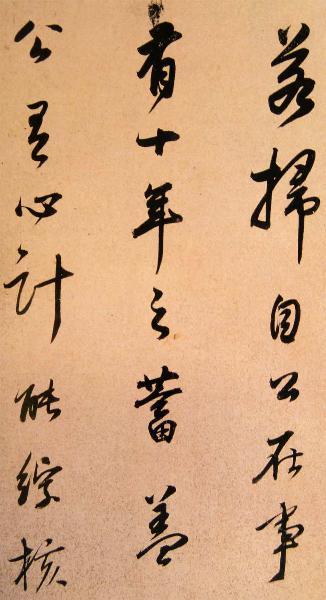 若掃自公在事
有十年之蓄蓋
公有心計能綜核